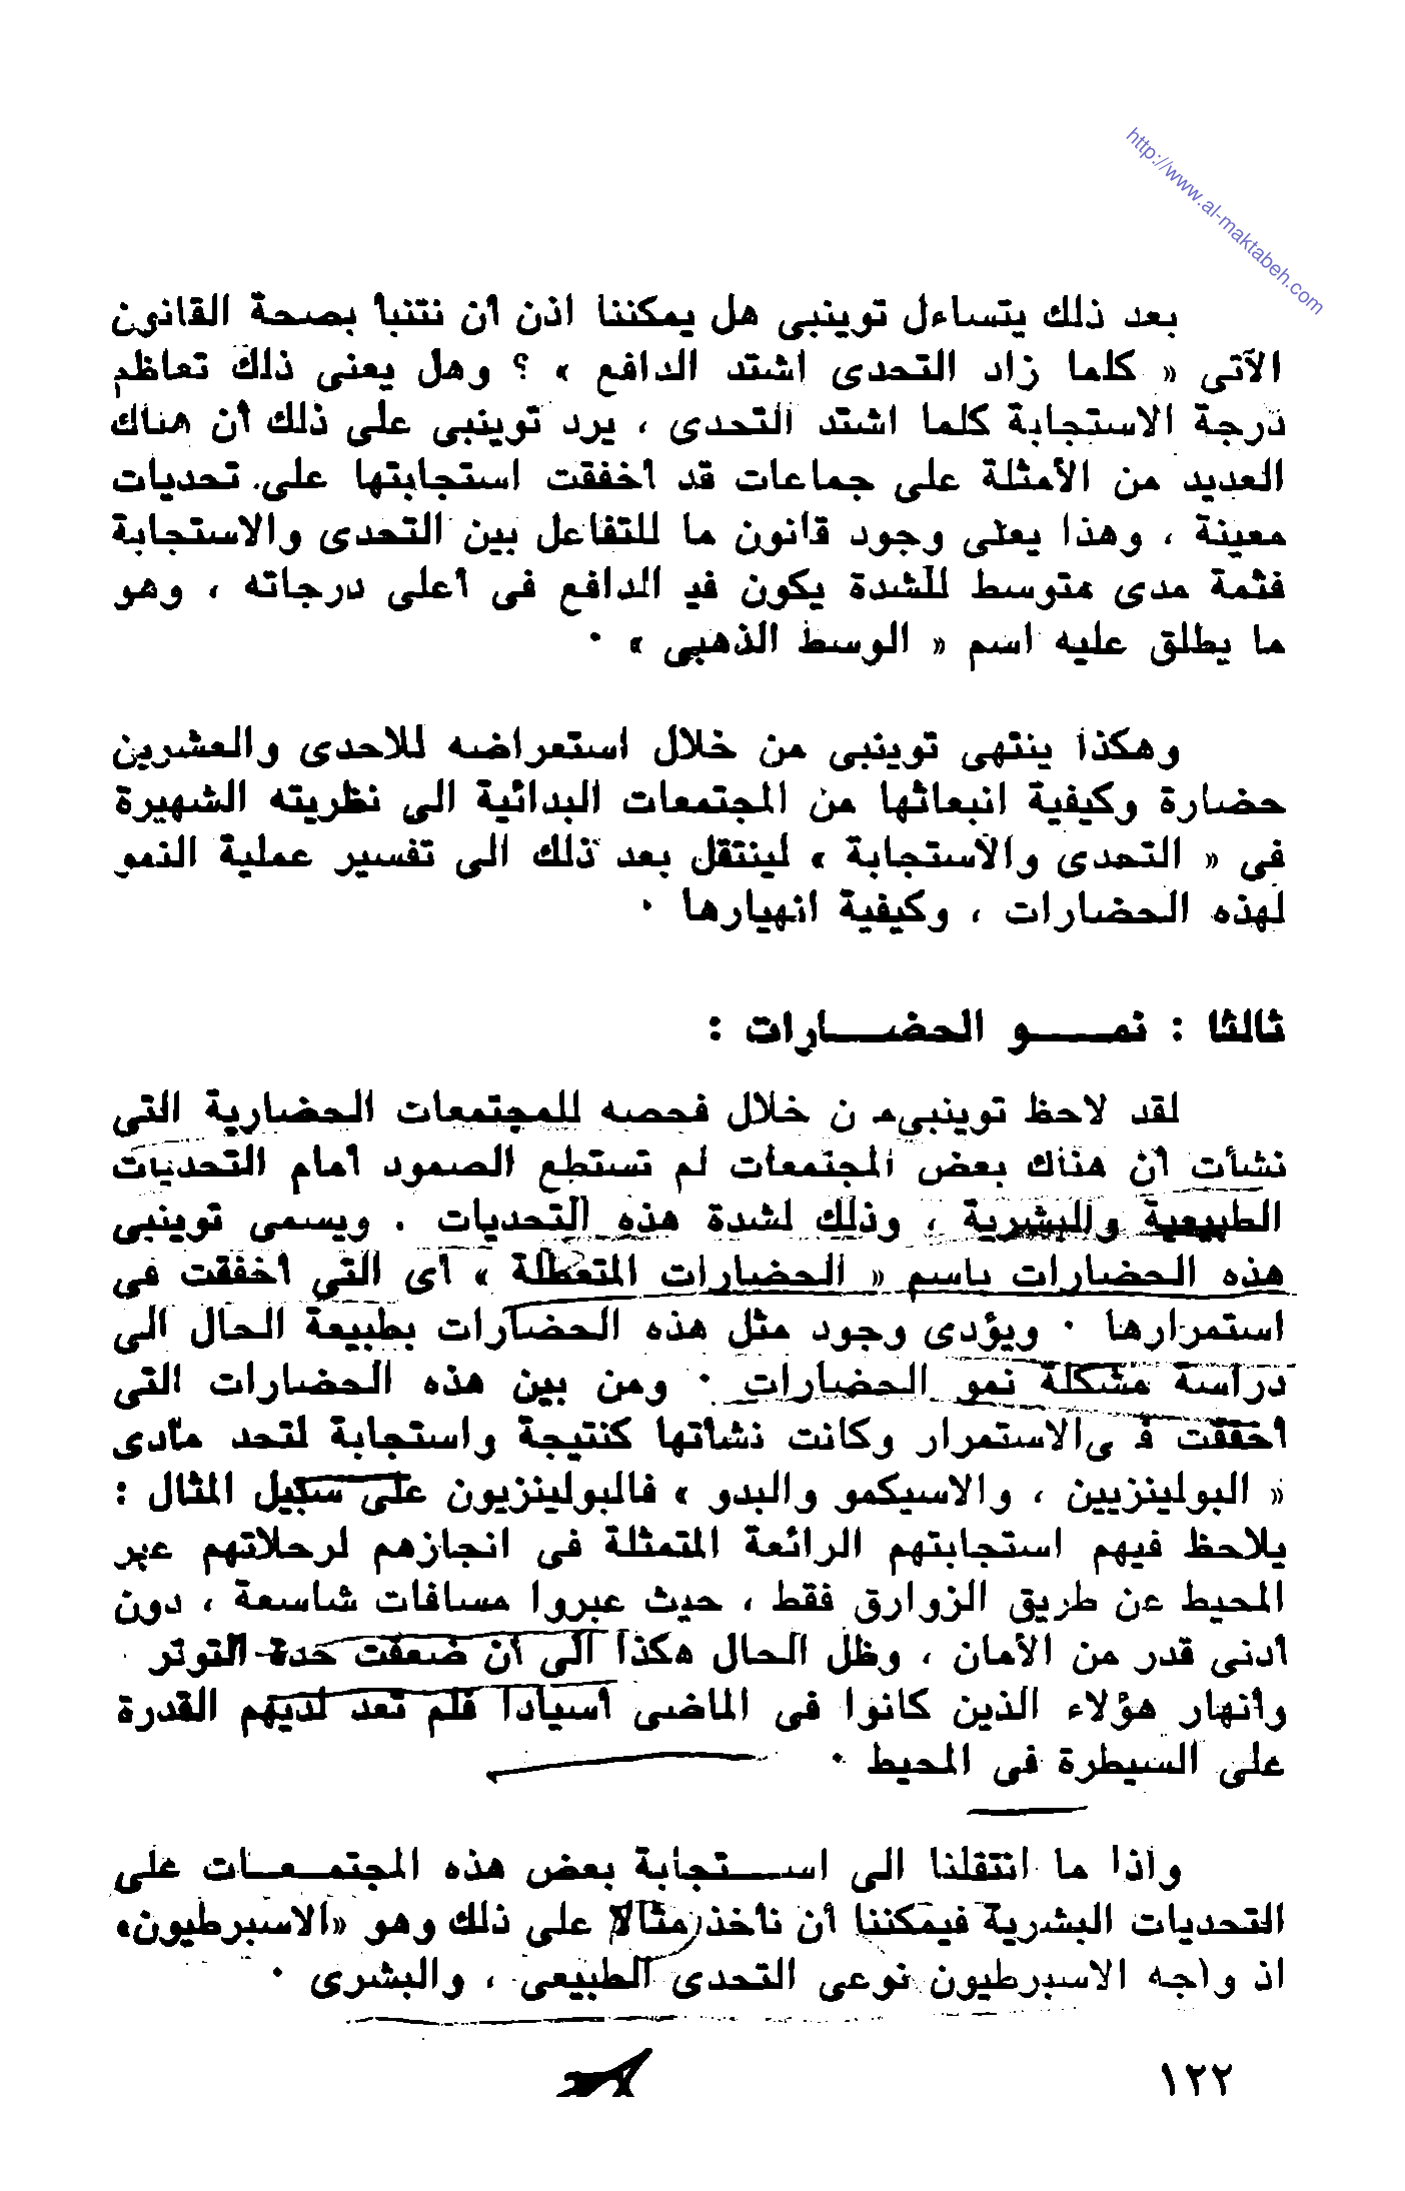 http://www.al-maktabeh.com
بعد ذلك يتساءل توينبى هل يمكننا اذن أن نتنبأ بصحة القانون
الآتى « كلما زاد التحدى اشتد الدافع » ؟ وهل يعنى ذلك تعاظم
درجة الاستجابة كلما اشتد التحدى ، يرد توينبى على ذلك أن هناك
العديد من الأمثلة على جماعات قد أخفقت استجابتها على تحديات
معينة ، وهذا يعنى وجود قانون ما للتفاعل بين التحدى والاستجابة
فثمة مدى متوسط للشدة يكون فيه الدافع فى أعلى درجاته ، وهو
ما يطلق عليه اسم « الوسط الذهبى » ٠
وهكذا ينتهى توينبى من خلال استعراضه للاحدى والعشرين
حضارة وكيفية انبعاثها من المجتمعات البدائية الى نظريته الشهيرة
فى « التحدى والاستجابة » لينتقل بعد ذلك الى تفسير عملية النمو
لهذه الحضارات ، وكيفية انهيارها ٠
ثالثا : نمـــو الحضـــارات :
لقد لاحظ توينبىم ن خلال فحصه للمجتمعات الحضارية التى
نشأت أن هناك بعض المجتمعات لم تستطع الصمود أمام التحديات
الطبيعية والبشرية ، وذلك لشدة هذه التحديات . ويسمى توينبى
هذه الحضارات باسم « الحضارات المتعطلة » أى التى أخفقت فى
استمرارها ٠ ويؤدى وجود مثل هذه الحضارات بطبيعة الحال الى
دراسة مشكلة نمو الحضارات ٠ ومن بين هذه الحضارات التى
أخفقت ف ىالاستمرار وكانت نشأتها كنتيجة واستجابة لتحد مادى
« البولينزيين ، والاسيكمو والبدو » فالبولينزيون على سبيل المثال :
يلاحظ فيهم استجابتهم الرائعة المتمثلة فى انجازهم لرحلاتهم عبر
المحيط عن طريق الزوارق فقط ، حيث عبروا مسافات شاسعة ، دون
أدنى قدر من الأمان ، وظل الحال هكذا الى أن ضعفت حدة التوتر
وانهار هؤلاء الذين كانوا فى الماضى أسيادا فلم تعد لديهم القدرة
على السيطرة فى المحيط ٠
واذا ما انتقلنا الى اســتجابة بعض هذه المجتمــعــات على
التحديات البشرية فيمكننا أن نأخذ مثالا على ذلك وهو «الاسبرطيون»
اذ واجه الاسبرطيون نوعى التحدى الطبيعى ، والبشرى ٠
١٢٢